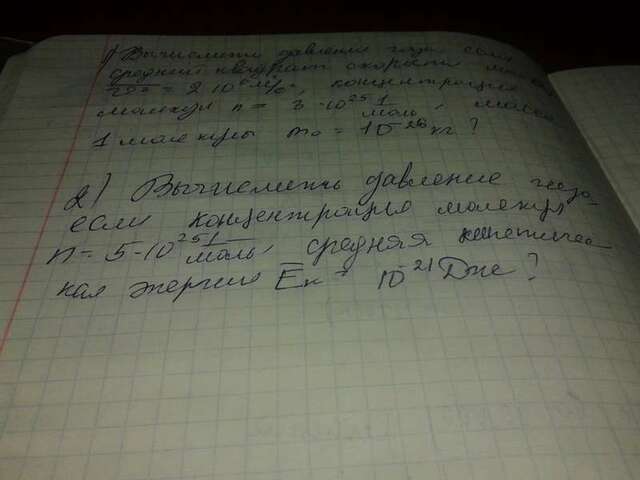 1) Вычислить давление газа если
средний квадрат скорости молек
v² = 2·10⁶ м/с, концентрация
молекул n = 3·10²⁵ 1/моль, масса
1 молекулы m₀ = 10⁻²⁶ кг?
2) Вычислить давление газа,
если концентрация молекул
n = 5·10²⁵ 1/моль средняя кинетичес-
кая энергия Eк = 10⁻²¹ Дж?